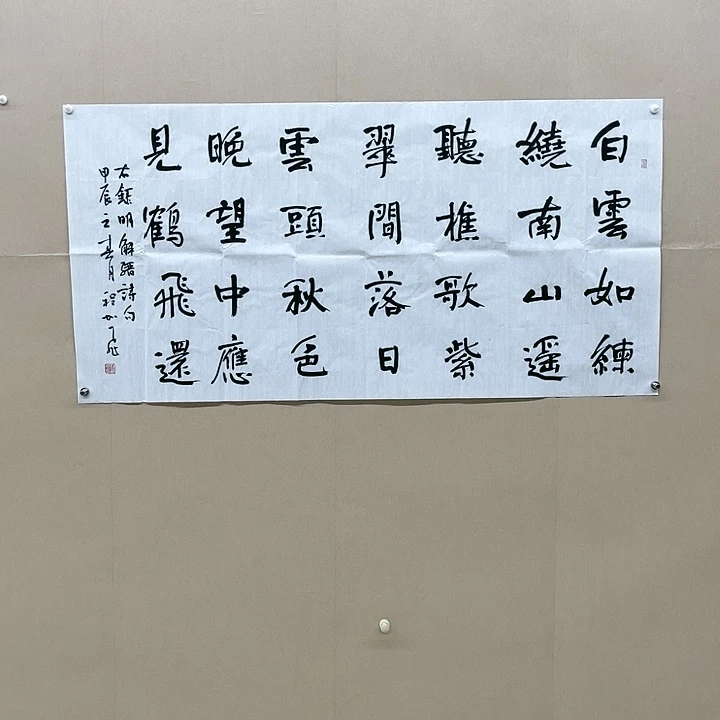 白雲如練
繞南山遥
聽樵歌紫
翠間落日
雲頭秋色
晚望中應
見鶴飛還
右錄明解縉詩句
甲辰之春月程